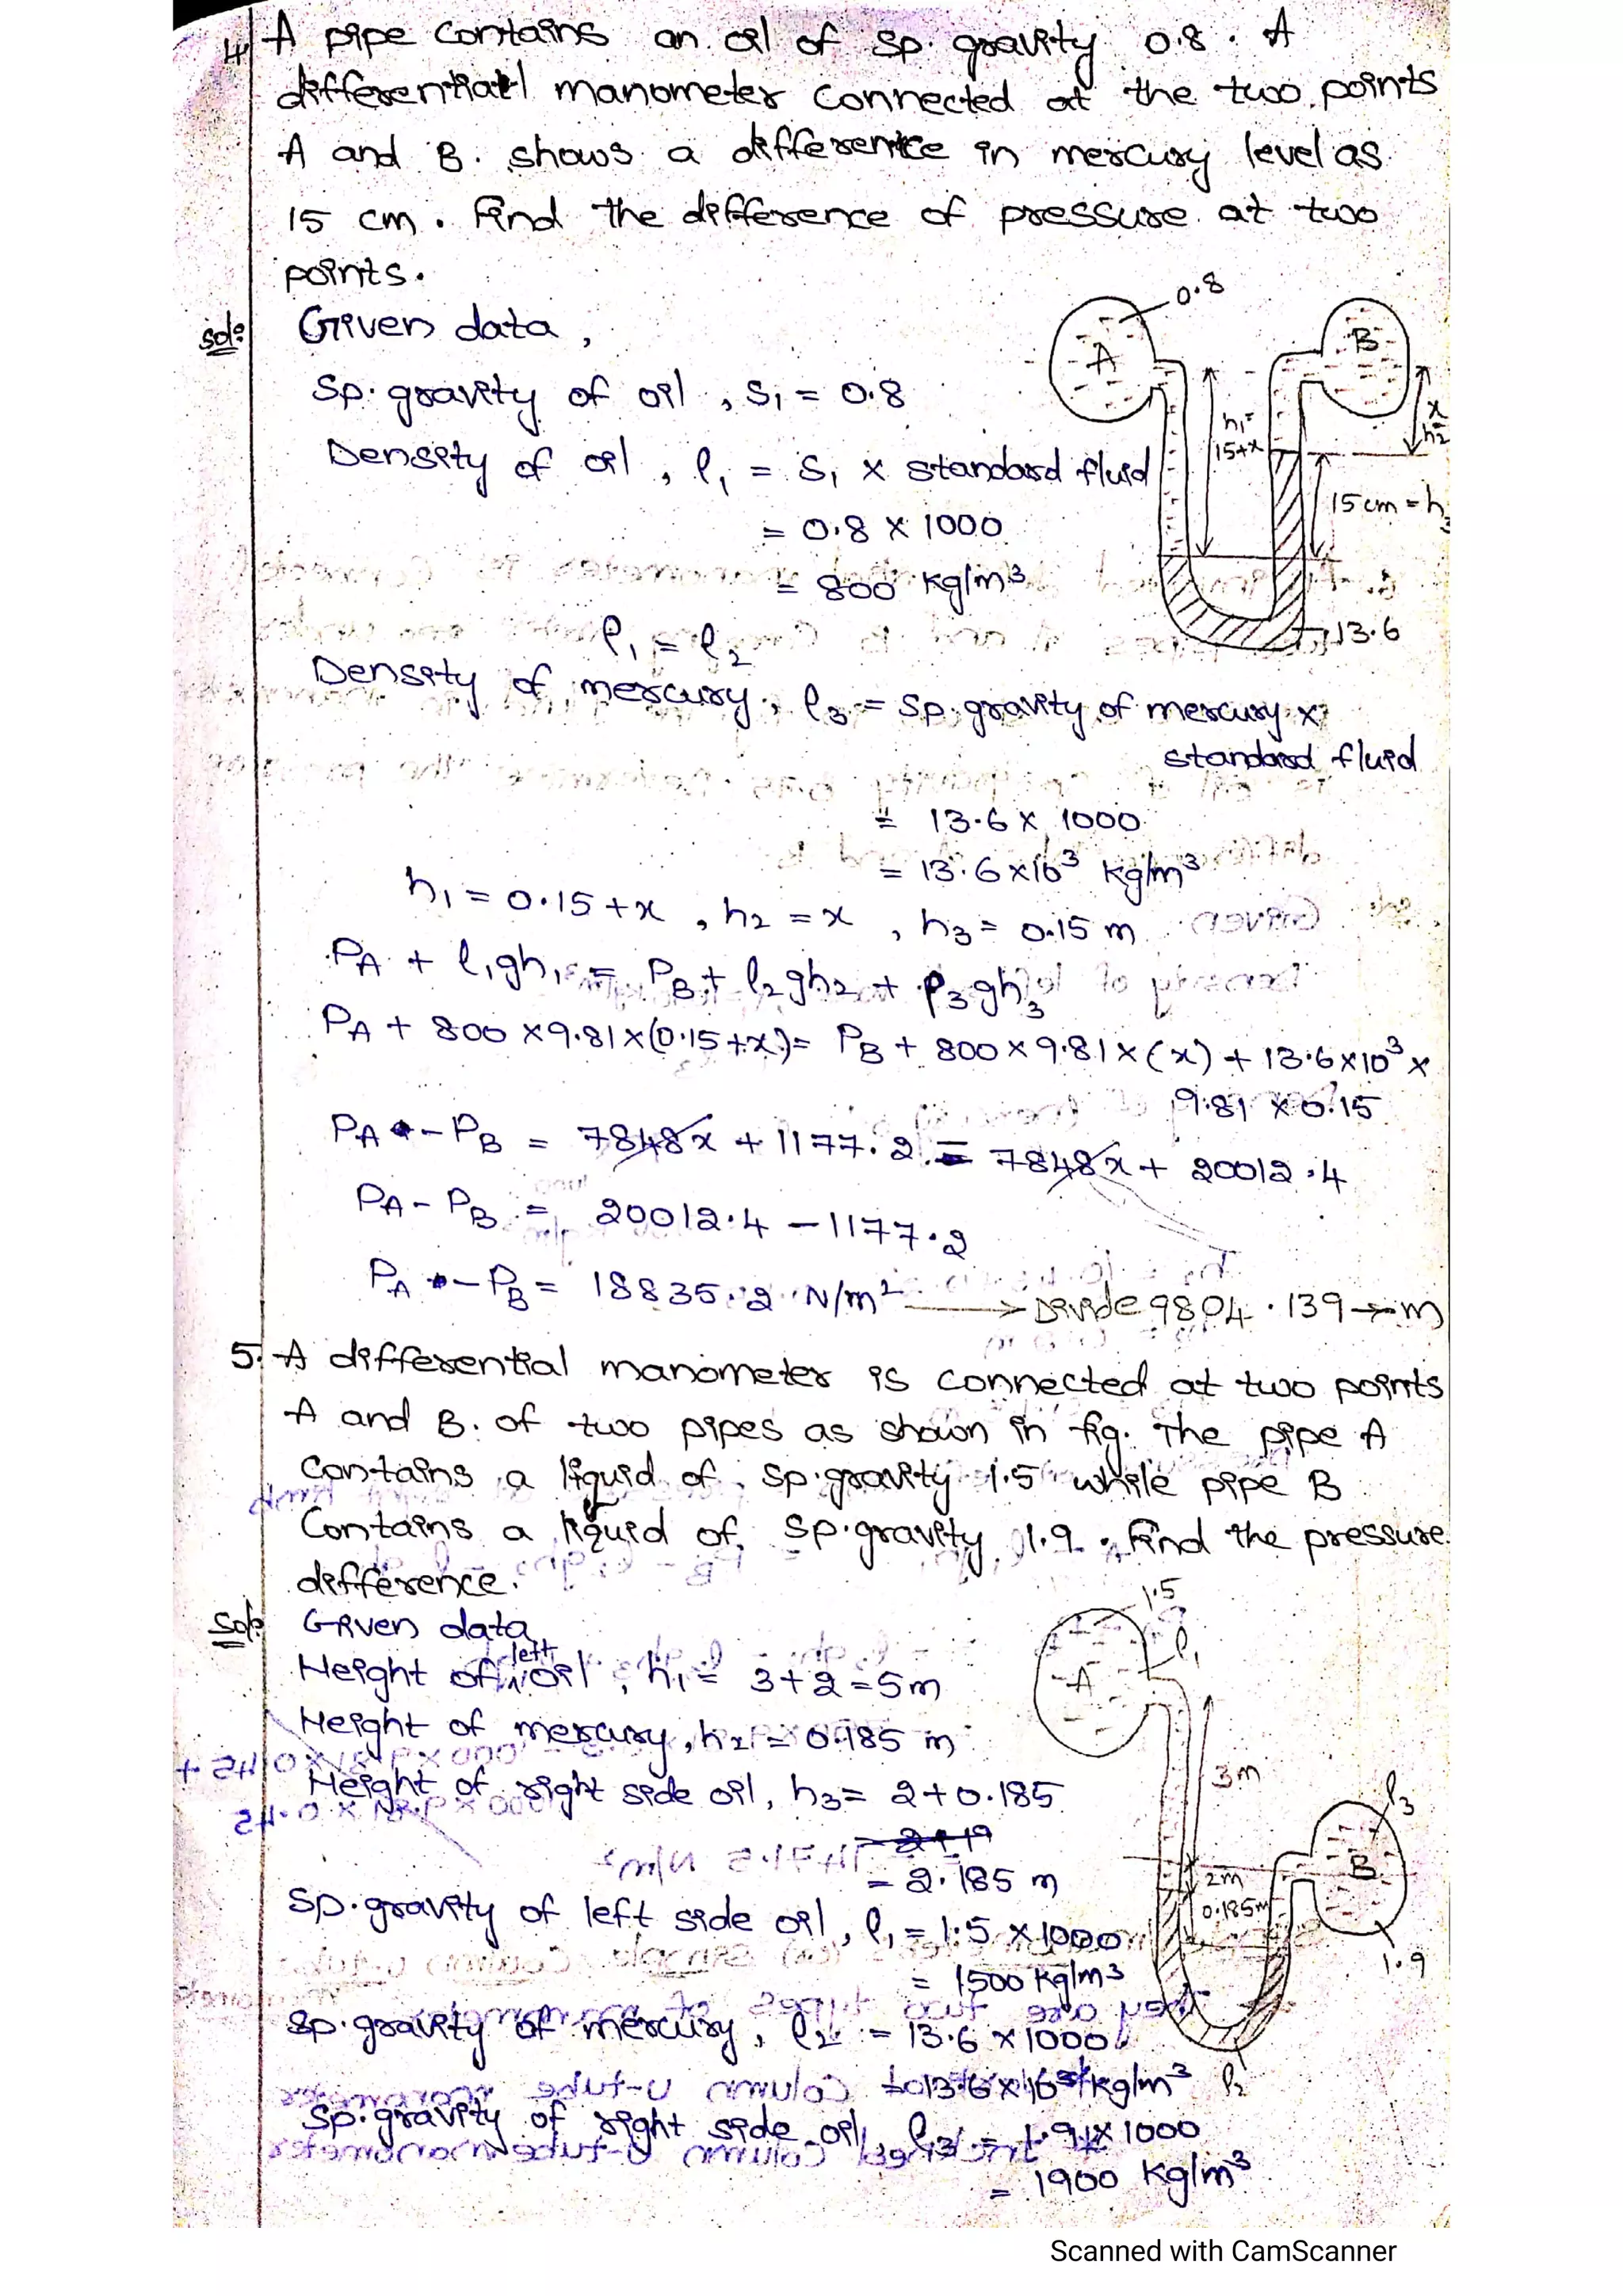 4. A pipe contains an oil of sp. gravity 0.8. A
differential manometer connected at the two points
A and B. shows a difference in mercury level as
15 cm. Find the difference of pressure at two
points.
Sol: Given data,
0.8
A
B
Sp. gravity of oil, S1 = 0.8
h1=
15+x
x
h2
Density of oil, ρ1 = S1 x standard fluid
15 cm = h3
= 0.8 x 1000
= 800 kg/m3
13.6
ρ1 = ρ2
Density of mercury, ρ3 = Sp. gravity of mercury x
standard fluid
= 13.6 x 1000
= 13.6 x 10^3 kg/m3
h1 = 0.15+x, h2 = x, h3 = 0.15 m
PA + ρ1gh1 = PB + ρ2gh2 + ρ3gh3
PA + 800 x 9.81 x (0.15+x) = PB + 800 x 9.81 x (x) + 13.6 x 10^3 x
9.81 x 0.15
PA - PB = 7848x + 1177.2 = 7848x + 20012.4
PA - PB = 20012.4 - 1177.2
PA - PB = 18835.2 N/m2 → Divide 9804.139 → m
5. A differential manometer is connected at two points
A and B. of two pipes as shown in fig. The pipe A
contains a liquid of sp. gravity 1.5 while pipe B
contains a liquid of sp. gravity 1.9. Find the pressure
difference.
1.5
ρ1
A
Sol: Given data,
Height of left oil, h1 = 3+2 = 5m
Height of mercury, h2 = 0.185 m
3m
Height of right side oil, h3 = 2+0.185
ρ3
B
= 2.185 m
2m
0.185m
Sp. gravity of left side oil, ρ1 = 1.5 x 1000
1.9
= 1500 kg/m3
Sp. gravity of mercury, ρ2 = 13.6 x 1000
= 13.6 x 10^3 kg/m3
ρ2
Sp. gravity of right side oil, ρ3 = 1.9 x 1000
= 1900 kg/m3
Scanned with CamScanner